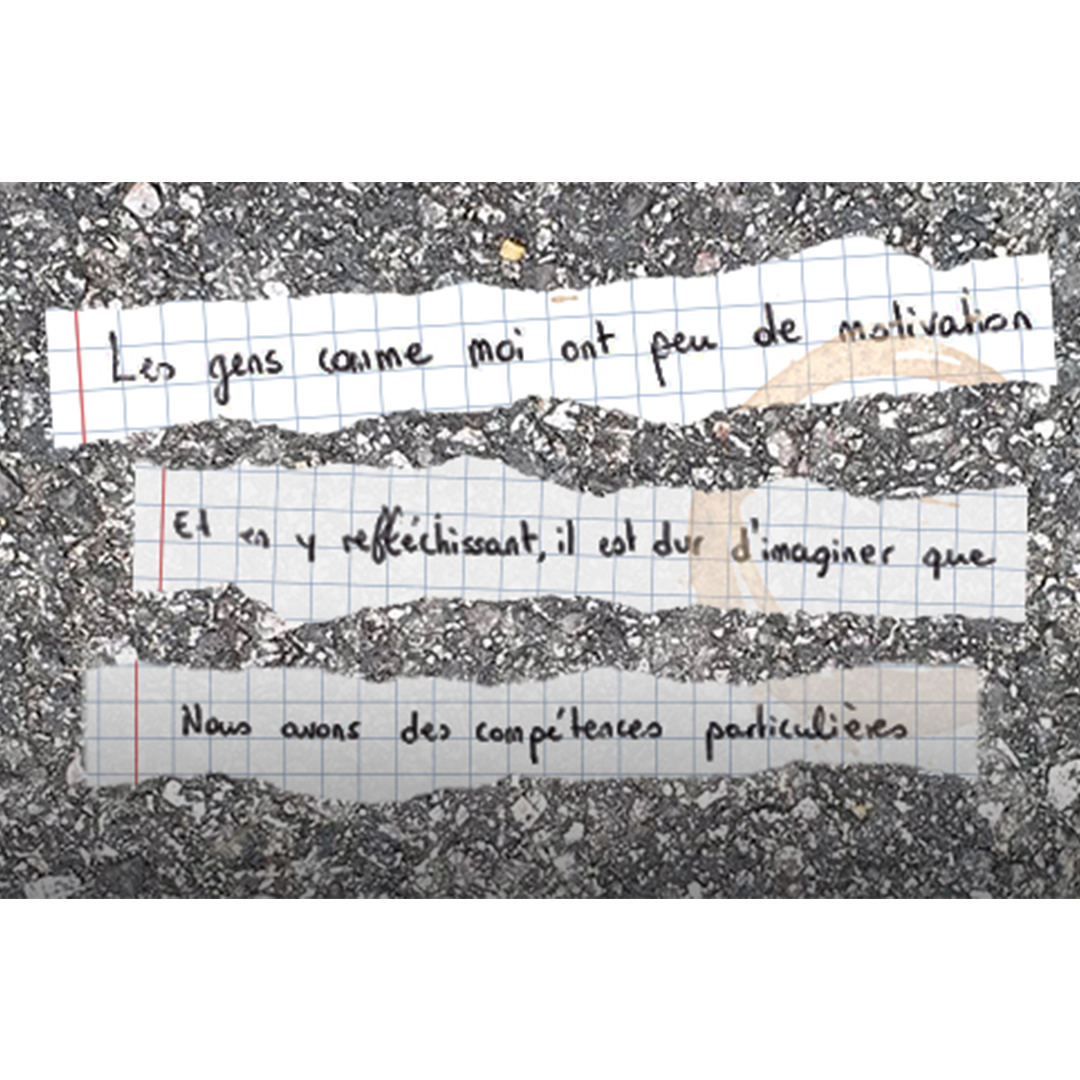 Les gens comme moi ont peu de motivation
Et en y refléchissant, il est dur d'imaginer que
Nous avons des compétences particulières